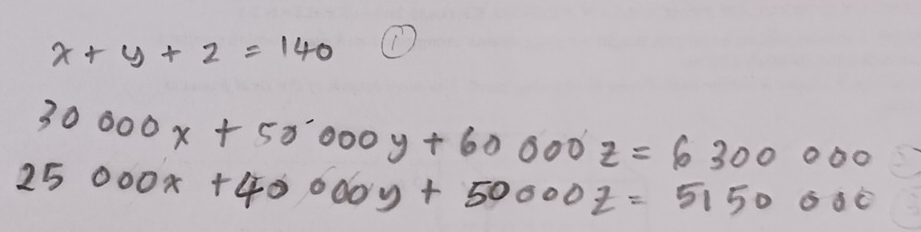 x + y + z = 140 ①
30 000x + 50 000y + 60 000z = 6 300 000
25 000x + 40 000y + 50 000z = 5150 000